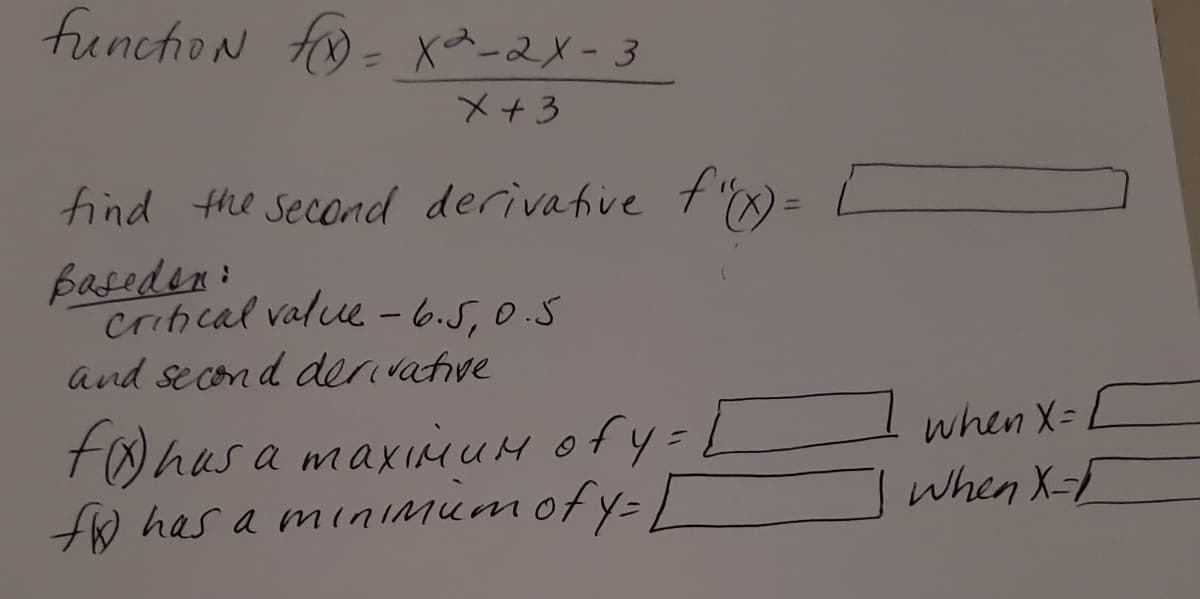 function f(x) = x²-2x-3
x+3
find the second derivative f"(x) =
Basedon:
critical value -6.5, 0.5
and second derivative
f(x) has a maximum of y = when x=
f(x) has a minimum of y= when x=